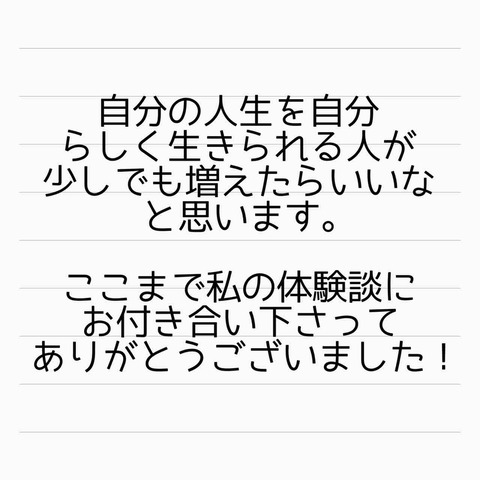 自分の人生を自分
らしく生きられる人が
少しでも増えたらいいな
と思います。
ここまで私の体験談に
お付き合い下さって
ありがとうございました！